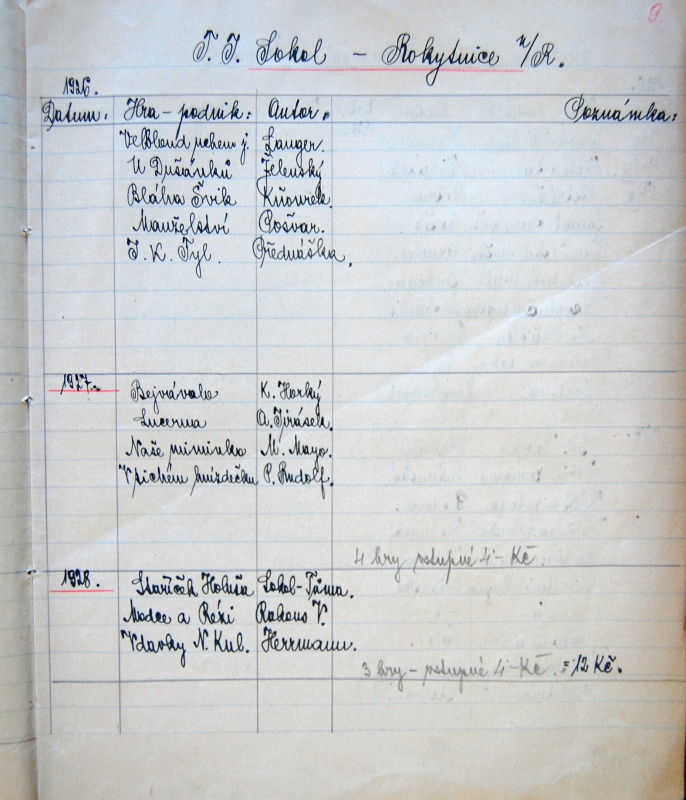 9.
T. J. Sokol – Rokytnice n/R.
1926.
Datum: Hra – podnik: Autor. Poznámka:
Velbloud uchem j. Langer.
U Dušánků Želenský
Bláha Švik Kňourek.
Manželství Pošvar.
J. K. Tyl. Přednáška.
1927. Bejvávalo K. Horký
Lucerna A. Jirásek.
Naše miminko M. Mayo.
V tichém hnízdečku P. Rudolf.
4 hry vstupné 4– Kč.
1928. Staříček Holuša Sokol-Tůma.
Madce a Rézi Rakous V.
Vdavky N. Kub. Herrmann.
3 hry – vstupné 4– Kč. = 12 Kč.